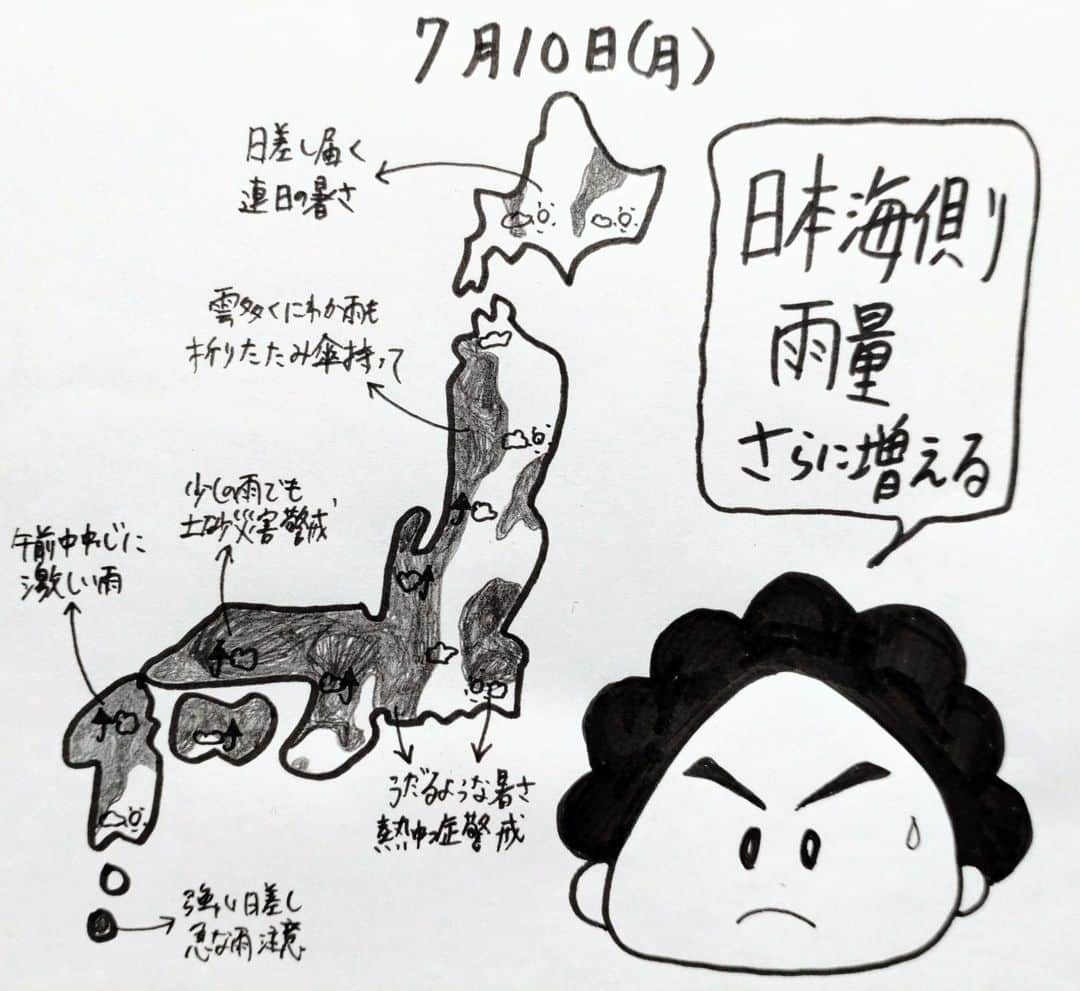 7月10日(月)
日差し届く
連日の暑さ
日本海側
雨量
さらに増える
雲多くにわか雨も
折りたたみ傘持って
少しの雨でも
土砂災害警戒
午前中中心に
激しい雨
うだるような暑さ
熱中症警戒
強い日差し
急な雨注意